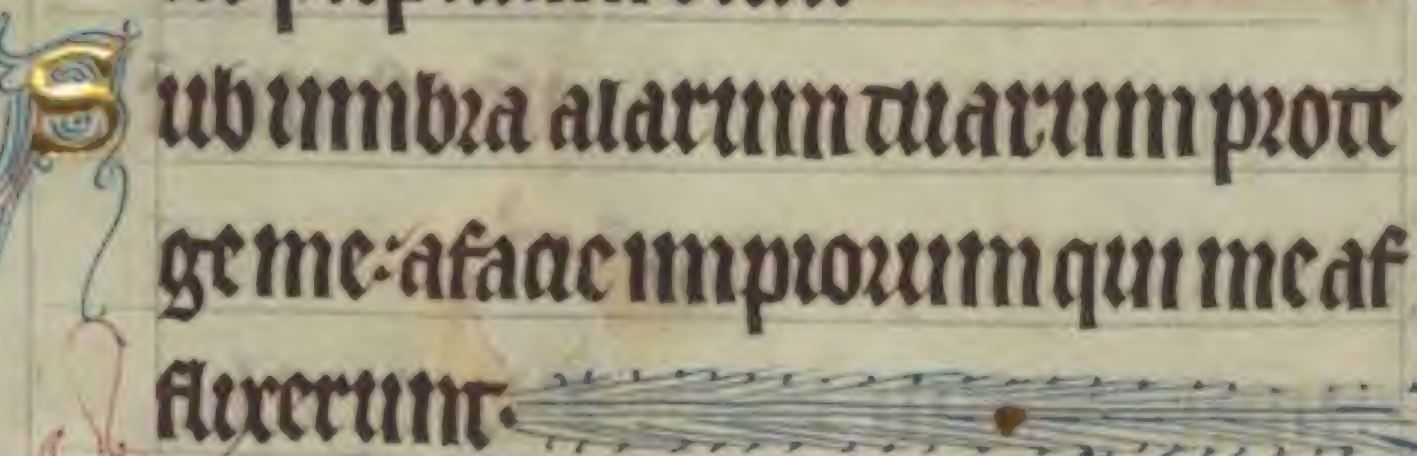 Sub umbra alarum tuarum prote
ge me: a facie impiorum qui me af
flixerunt.